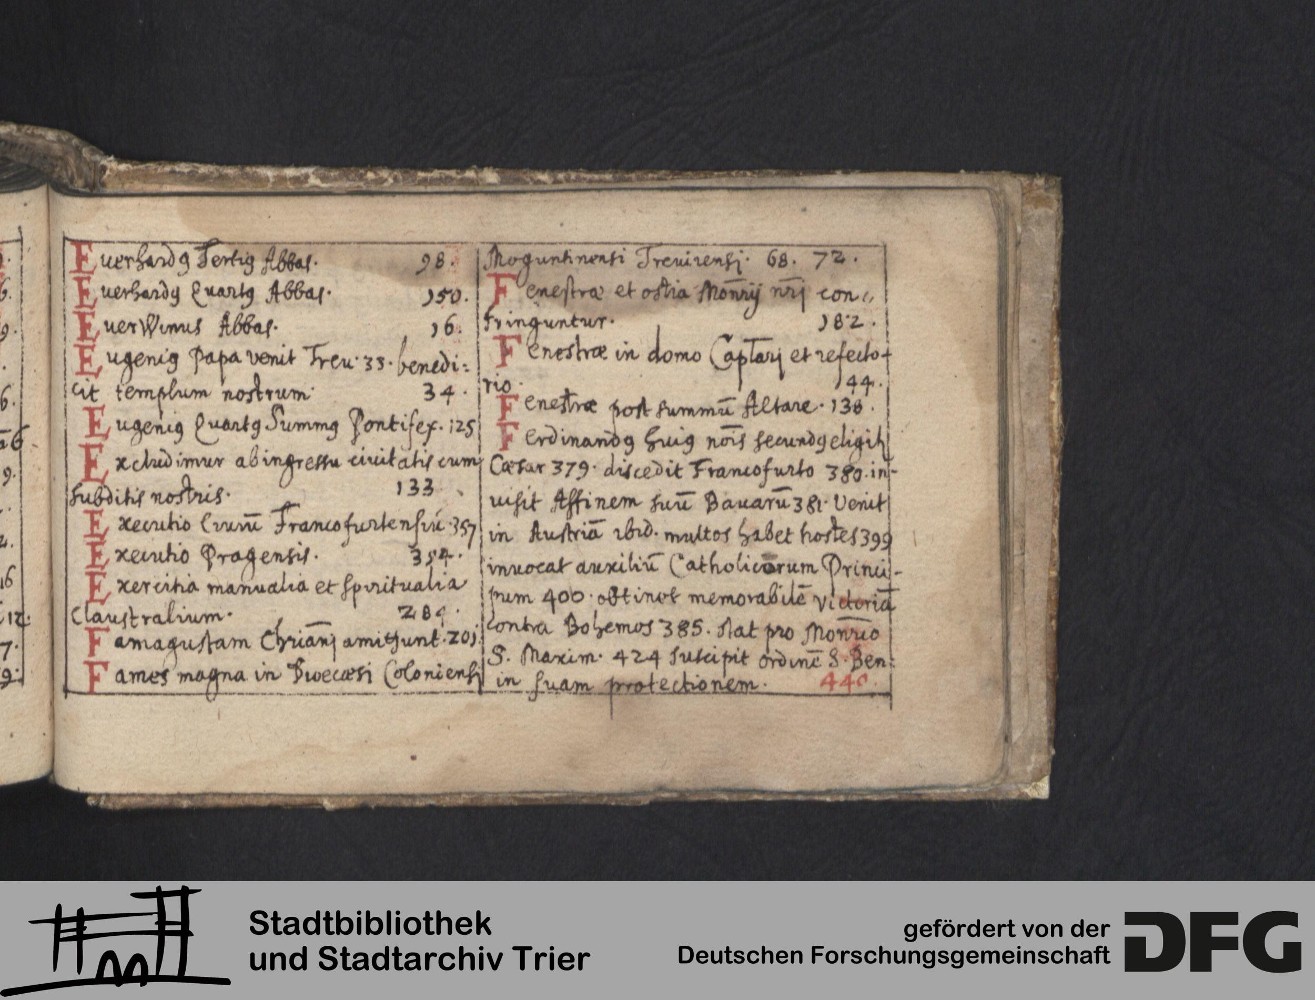 Everhardꝯ Tertiꝯ Abbas. 98.
Everhardꝯ Quartꝯ Abbas. 150.
EverWinus Abbas. 16.
Eugeniꝯ Papa venit Trev. 33. benedi:
cit templum nostrum. 34.
Eugeniꝯ Quartꝯ Summꝯ Pontifex. 125
Excludimur ab ingressu civitatis cum
subditis nostris. 133
Executio Civiū Francofurtensiū. 357
Executio Pragensis. 354.
Exercitia manualia et spiritualia
Claustralium. 284.
Famagustam Chriani amittunt. 201.
Fames magna in Dioecesi Coloniensi
Moguntinensi Trevirensi. 68. 72.
Fenestræ et ostia Monrij nri con„
fringuntur. 182.
Fenestræ in domo Captarj et refecto+
rio. 144.
Fenestræ post summū Altare. 138.
Ferdinandꝯ huiꝯ nōis secundꝯ eligit
Cæsar 379. discedit Francofurto 380. in-
visit Affinem suū Bavarū 381. Venit
in Austriā ibid. multos habet hostes 399
invocat auxiliū Catholicorum Princi-
pum 400. obtinet memorabilē victoriā
contra Bohemos 385. stat pro Monrio
S. Maxim. 424 suscipit ordinē S. Ben:
in suam protectionem. 440.
Stadtbibliothek
und Stadtarchiv Trier
gefördert von der
Deutschen Forschungsgemeinschaft
DFG